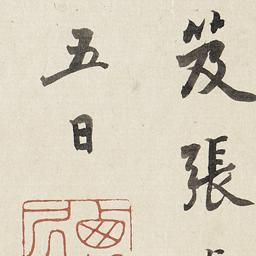 笈張
五日